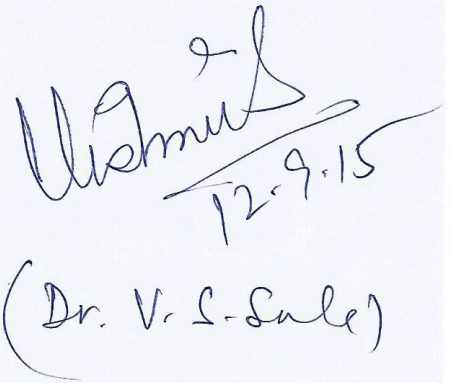 12.9.15
(Dr. V. S. Sule)